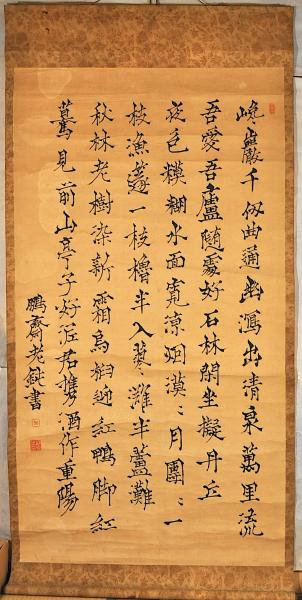 巉巖千仭曲通幽瀉出清泉萬里流
吾愛吾廬隨處好石林閑坐擬丹丘
夜色糢糊水面寬涼烟漠〻月團〻一
枝漁篴一枝櫓半入蓼灘半蘆灘
秋林老樹染新霜烏桕紅鴨脚紅
驀見前山亭子好君携酒作重陽
鵬齋老書